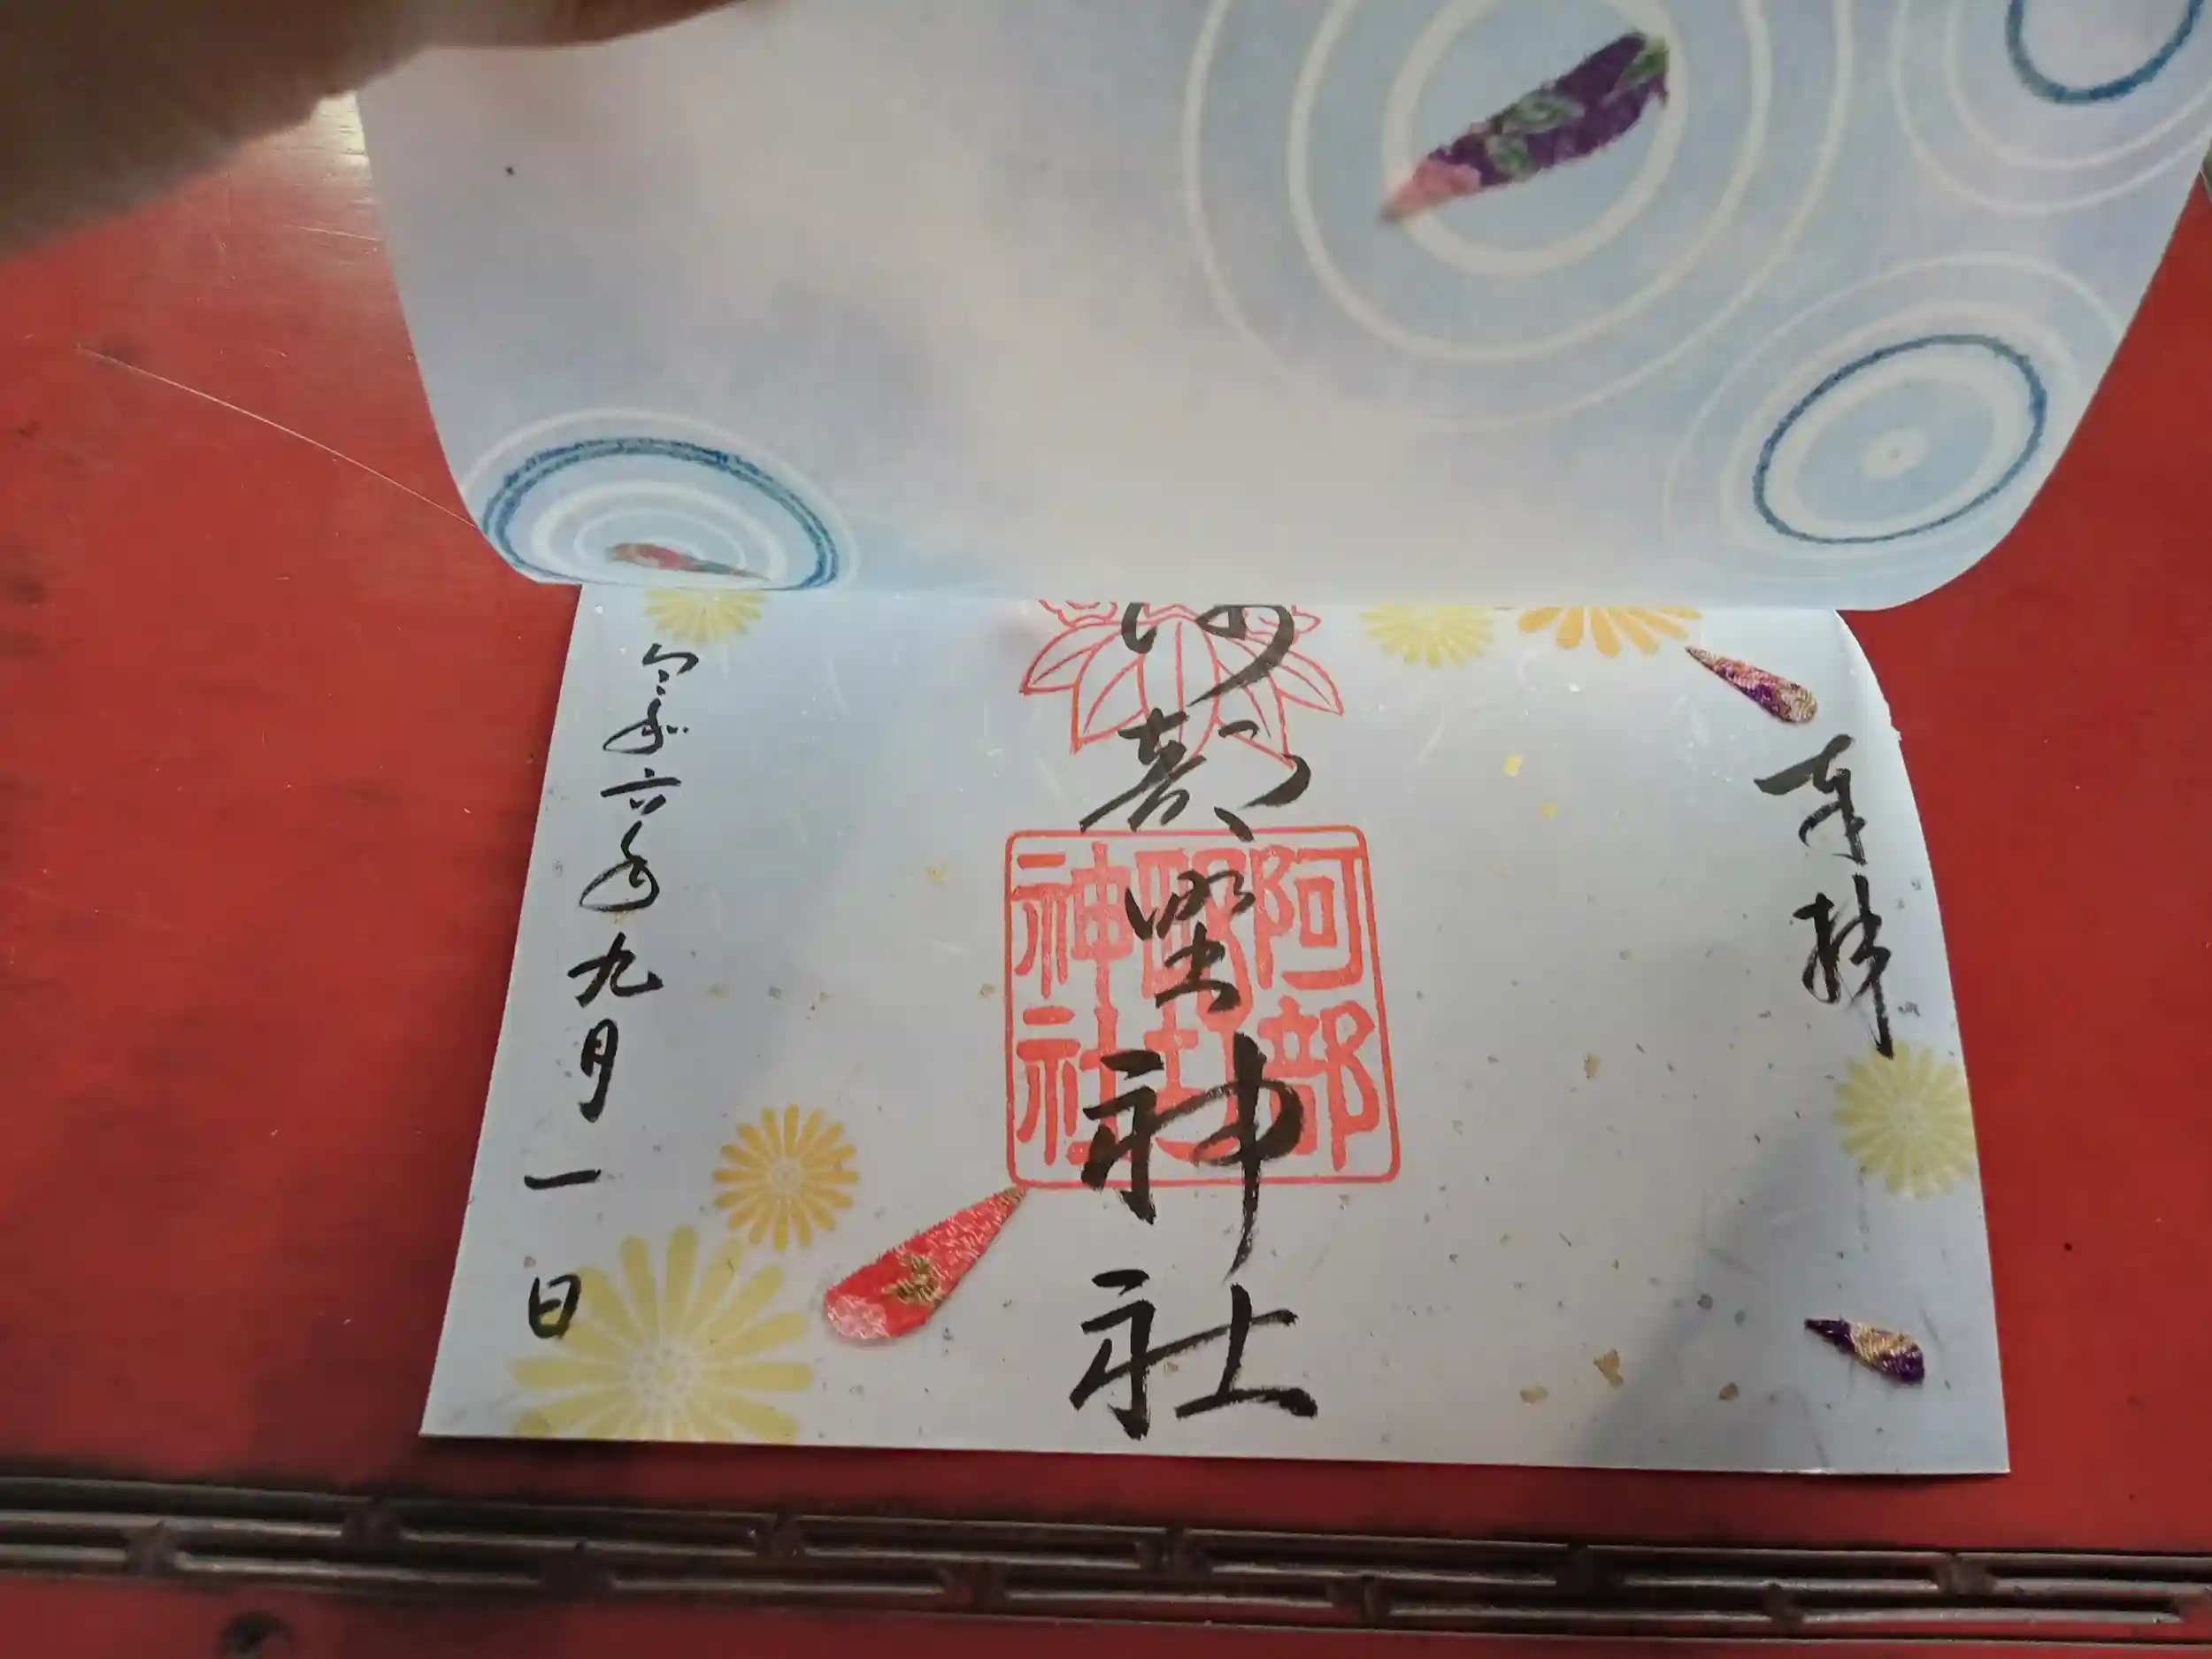 奉拝
阿部野神社
阿部野神社
令和六年九月一日